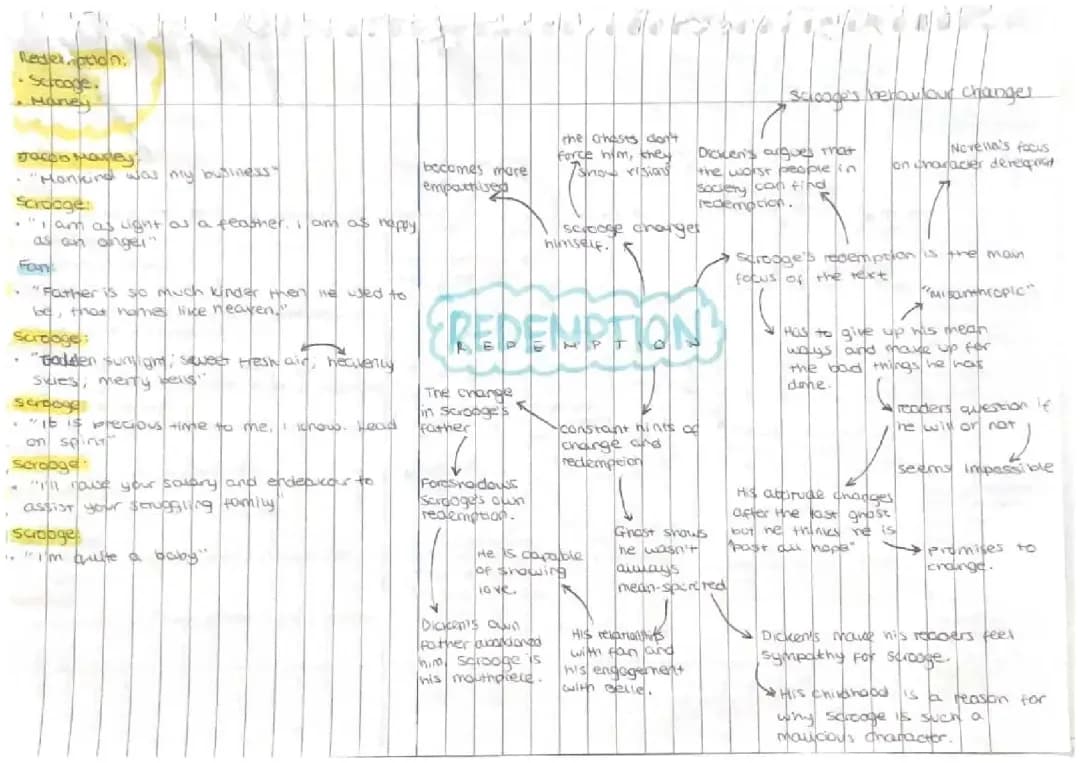 Redemption:
• Scrooge.
• Marley
Jacob Marley:
• "Mankind was my business"
Scrooge:
• "I am as light as a feather. I am as happy
as an angel"
Fan:
• "Father is so much kinder then he used to
be, that homes like heaven."
Scrooge:
• "Golden sunlight; sweet fresh air; heavenly
skies; merry bells"
Scrooge:
• "It is precious time to me, I know. Lead
on spirit"
Scrooge:
• "I'll raise your salary and endeavour to
assist your struggling family"
Scrooge:
• "I'm quite a baby"
REDEMPTION
REDEMPTION
becomes more
empathised
the ghosts don't
force him, they
show visions
scrooge changes
himself.
Dicken's argues that
the worst people in
society can find
redemption.
Scrooge's behaviour changes
Novella's focus
on character
Scrooge's redemption is the main
focus of the text
"Misanthropic"
Has to give up his mean
ways and make up for
the bad things he has
done.
readers question if
he will or not
seems impossible
His attitude changes
after the last ghost
but he thinks he is
"past all hope"
promises to
change.
The change
in Scrooge's
father
constant hints of
change and
redemption
Foreshadows
Scrooge's own
redemption.
Dicken's own
father abandoned
him, scrooge is
his mouthpiece.
Ghost shows
he wasn't
always
mean-spirited
He is capable
of showing
love.
His relationship
with fan and
his engagement
with Belle.
Dicken's make his readers feel
sympathy for Scrooge.
His childhood is a reason for
why scrooge is such a
malicious character.